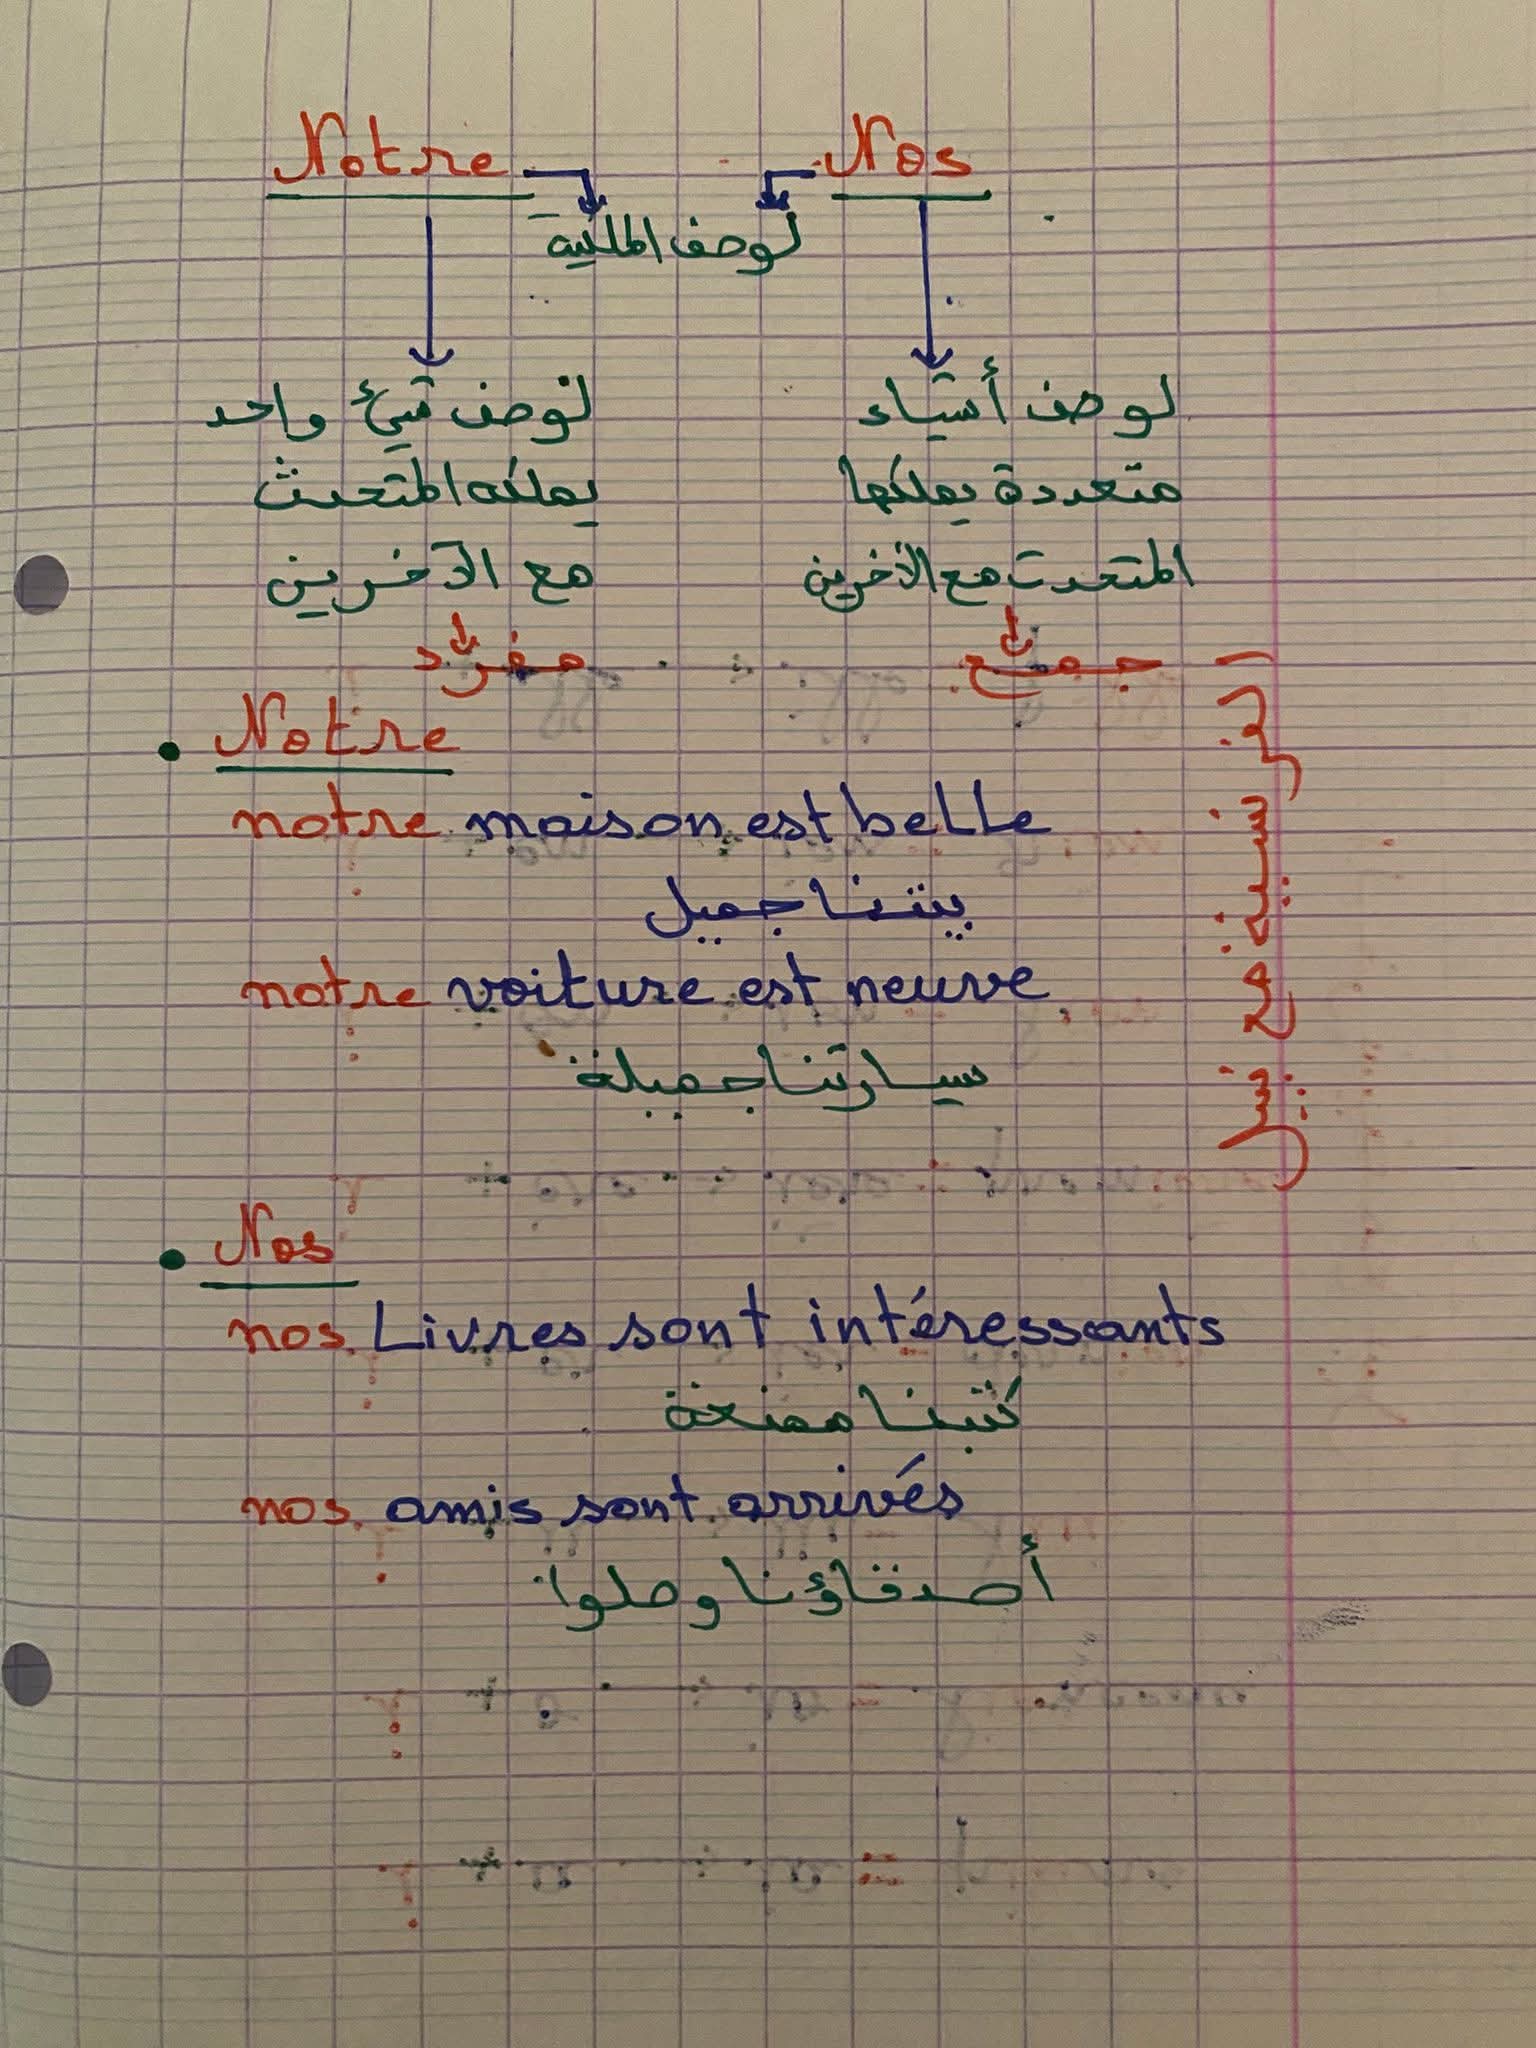 Notre Nos
لوصف الملكية
لوصف شيئ واحد
يملكه المتحدث
مع الآخرين
مفرد
لوصف أشياء
متعددة يملكها
المتحدث مع الآخرين
جمع
• Notre
notre maison est belle
بيتنا جميل
notre voiture est neuve
سيارتنا جميلة
• Nos
nos Livres sont intéressants
كتبنا ممتعة
nos amis sont arrivés
أصدقاؤنا وصلوا
الفرنسية مع نبيل